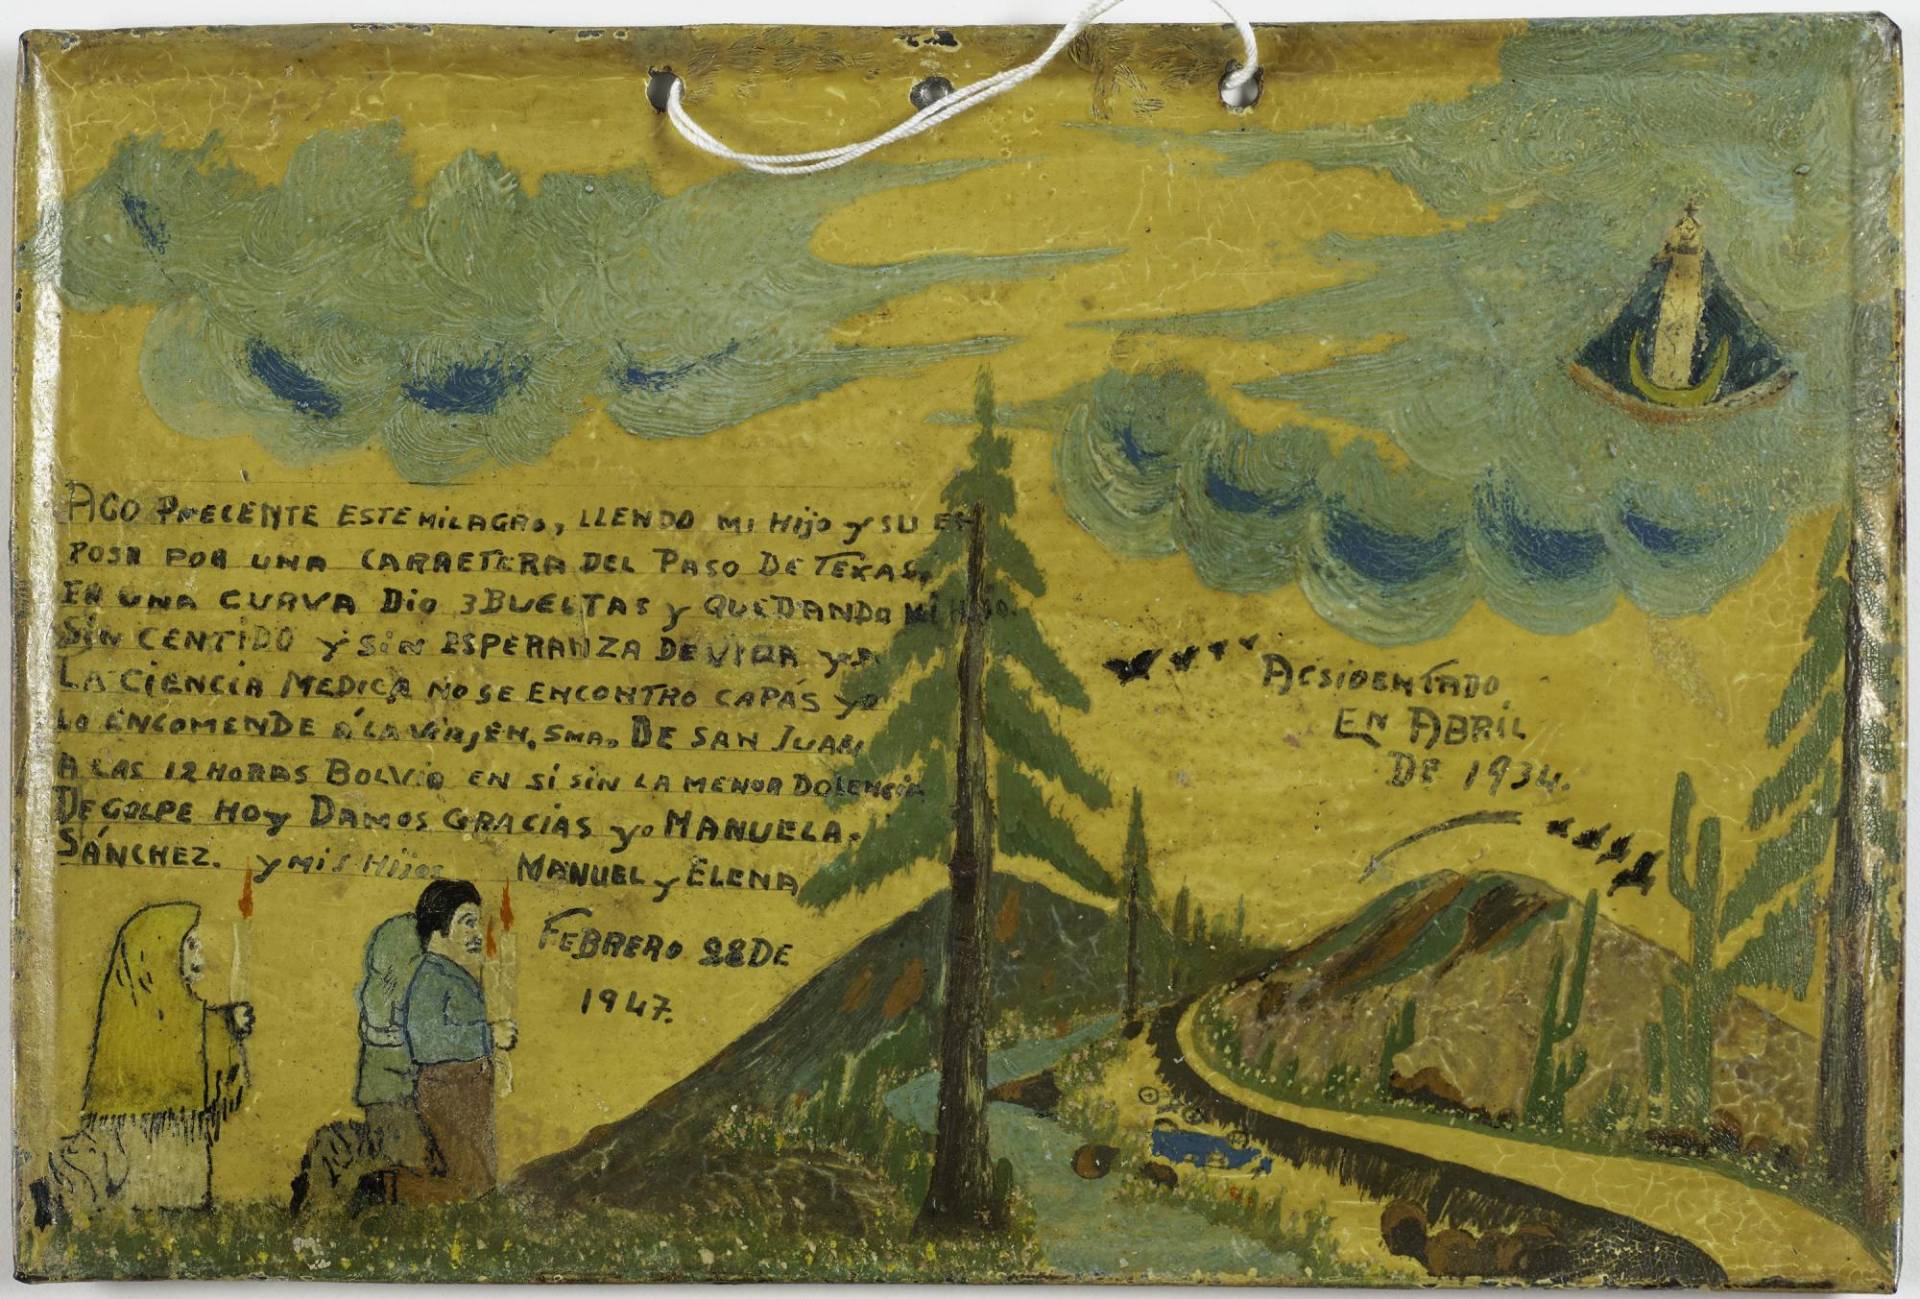 AGO PRECENTE ESTE MILAGRO, LLENDO MI HIJO Y SU ES-
POSA POR UNA CARRETERA DEL PASO DE TEXAS,
EN UNA CURVA DIO 3 BUELTAS Y QUEDANDO MI HIJO.
SIN CENTIDO Y SIN ESPERANZA DE VIDA
LA CIENCIA MEDICA NO SE ENCONTRO CAPÁS YO
LO ENCOMENDE Á LA VIRJEN. SMA. DE SAN JUAN
A LAS 12 HORAS BOLVIO EN SÍ SIN LA MENOR DOLENCIA
DE GOLPE HOY DAMOS GRACIAS YO MANUELA.
SÁNCHEZ. Y MIS HIJOS MANUEL Y ELENA
FEBRERO 28 DE
1947.
ACSIDENTADO
EN ABRIL
DE 1934.